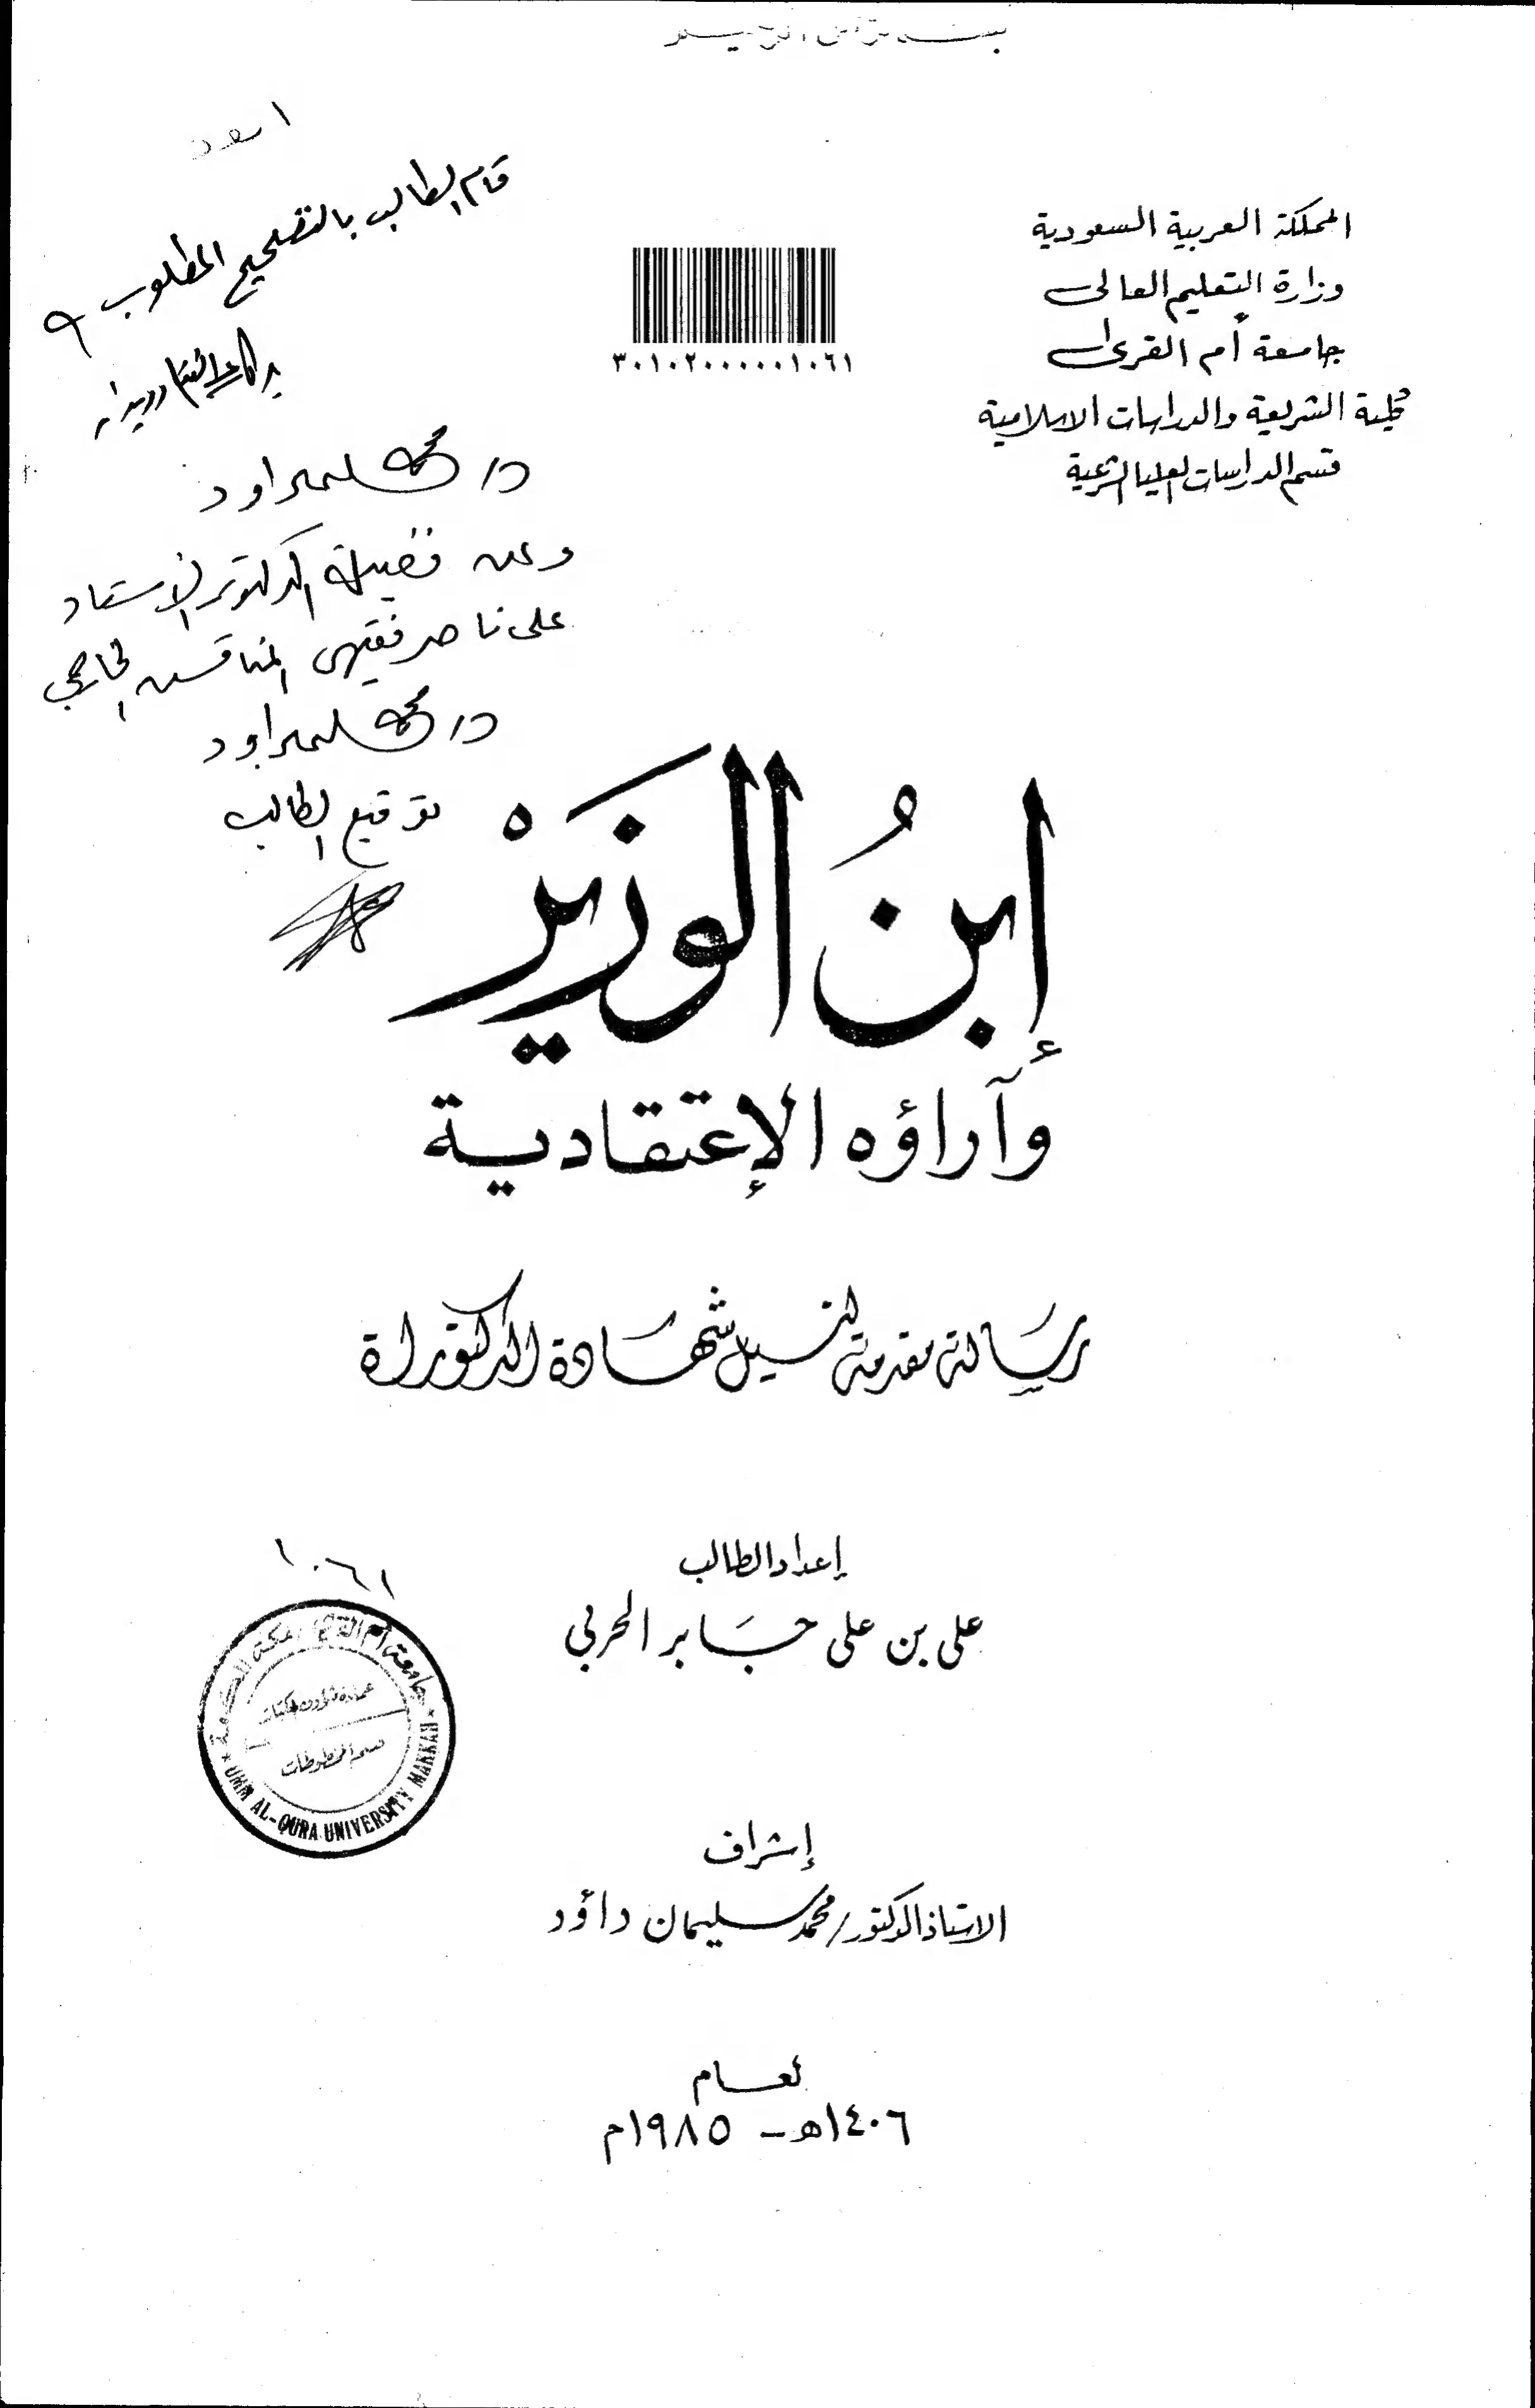 المملكة العربية السعودية
وزارة التعليم العالى
جامعة أم القرى
كلية الشريعة والدراسات الاسلامية
قسم الدراسات العليا الشرعية
٣٠١٠٢٠٠٠٠٠١٠٦١
قام الطالب بالتصحيح المطلوب
د/ محمد سليمان داود
وعن فضيلة الدكتور الأستاذ
على ناصر فقيهى المناقش الخارجي
د/ محمد سليمان داود
توقيع الطالب
إبنُ الوَزيرْ
وآراؤه الإعتقادية
رسَالة مقدمة لنيل شهَادة الدكتوراة
إعداد الطالب
على بن على جَابر الحربي
١٠٦١
جامعة أم القرى مكة المكرمة
عمادة شؤون المكتبات
قسم المخطوطات
UMM AL-QURA UNIVERSITY MAKKAH
إشراف
الاستاذ الدكتور/ محمد سليمان داؤد
لعام
١٤٠٦هـ - ١٩٨٥م